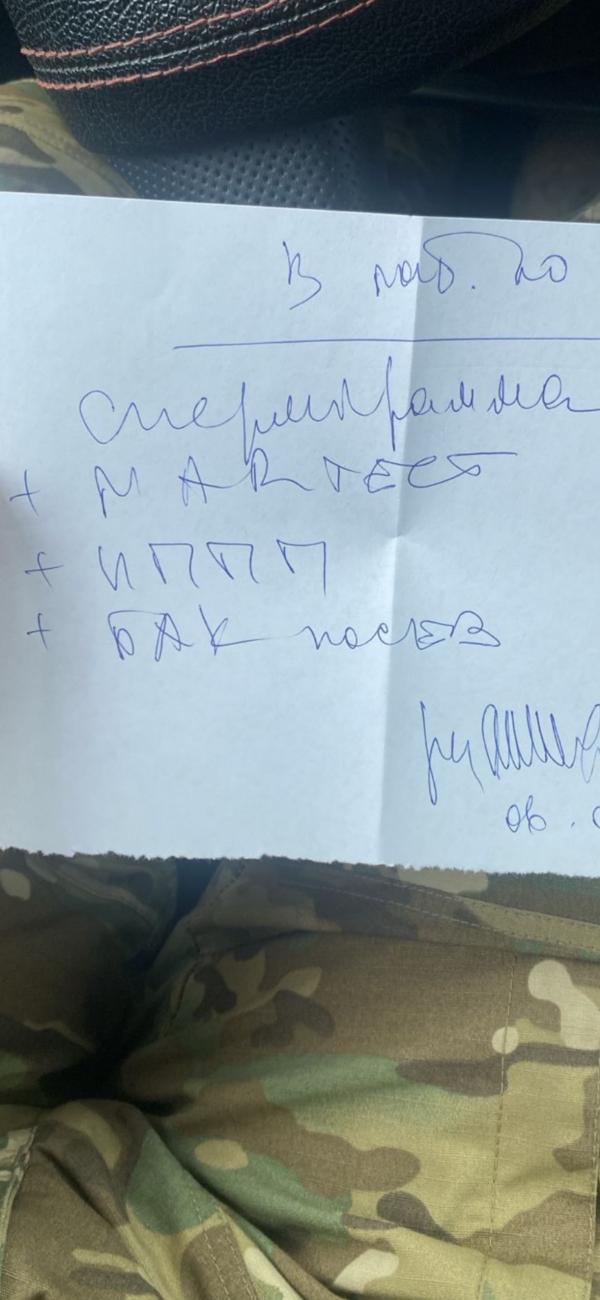 В лаб. по
спермограмма
+ MAR тест
+ ИППП
+ БАК посев
06.